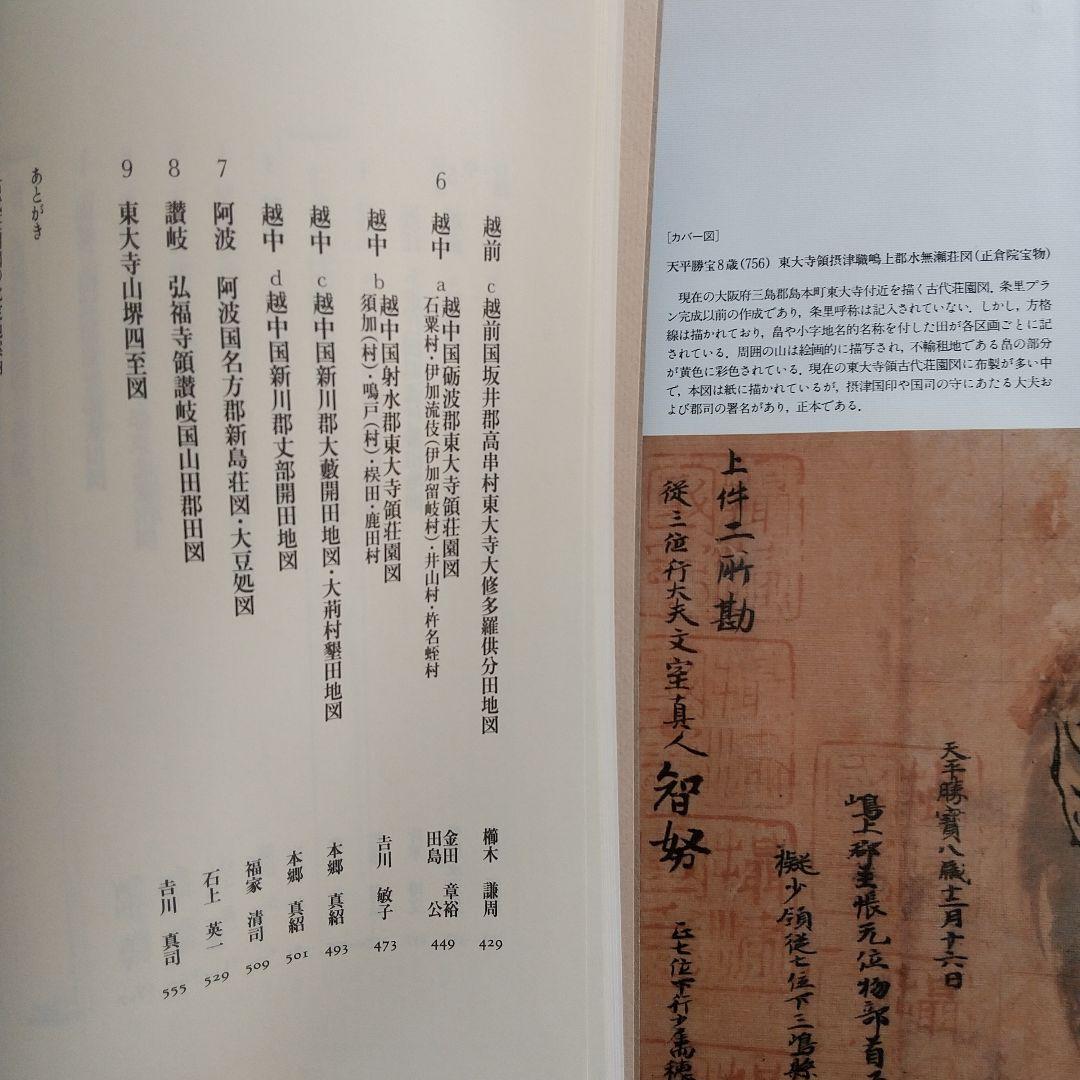 越前 c 越前国坂井郡高串村東大寺大修多羅供分田地図 櫛木 謙周 429
6 越中 a 越中国砺波郡東大寺領荘園図 金田 章裕
石粟村・伊加流伎(伊加留岐村)・井山村・杵名蛭村 田島 公 449
越中 b 越中国射水郡東大寺領荘園図
須加(村)・鳴戸(村)・楔田・鹿田村 吉川 敏子 473
越中 c 越中国新川郡大藪開田地図・大荊村墾田地図 本郷 真紹 493
越中 d 越中国新川郡丈部開田地図 本郷 真紹 501
7 阿波 阿波国名方郡新島荘図・大豆処図 福家 清司 509
8 讃岐 弘福寺領讃岐国山田郡田図 石上 英一 529
9 東大寺山堺四至図 吉川 真司 555
あとがき
[カバー図]
天平勝宝8歳(756) 東大寺領摂津職嶋上郡水無瀬荘図(正倉院宝物)
現在の大阪府三島郡島本町東大寺付近を描く古代荘園図.条里プラ
ン完成以前の作成であり,条里呼称は記入されていない.しかし,方格
線は描かれており,畠や小字地名的名称を付した田が各区画ごとに記
されている.周囲の山は絵画的に描写され,不輸租地である畠の部分
が黄色に彩色されている.現在の東大寺領古代荘園図に布製が多い中
で,本図は紙に描かれているが,摂津国印や国司の守にあたる大夫お
よび郡司の署名があり,正本である.
天平勝寶八歳十二月十六日
嶋上郡主帳无位物部首
擬少領従七位下三嶋縣
上件二所勘
従三位行大夫文室真人智努
正七位下行少属穂